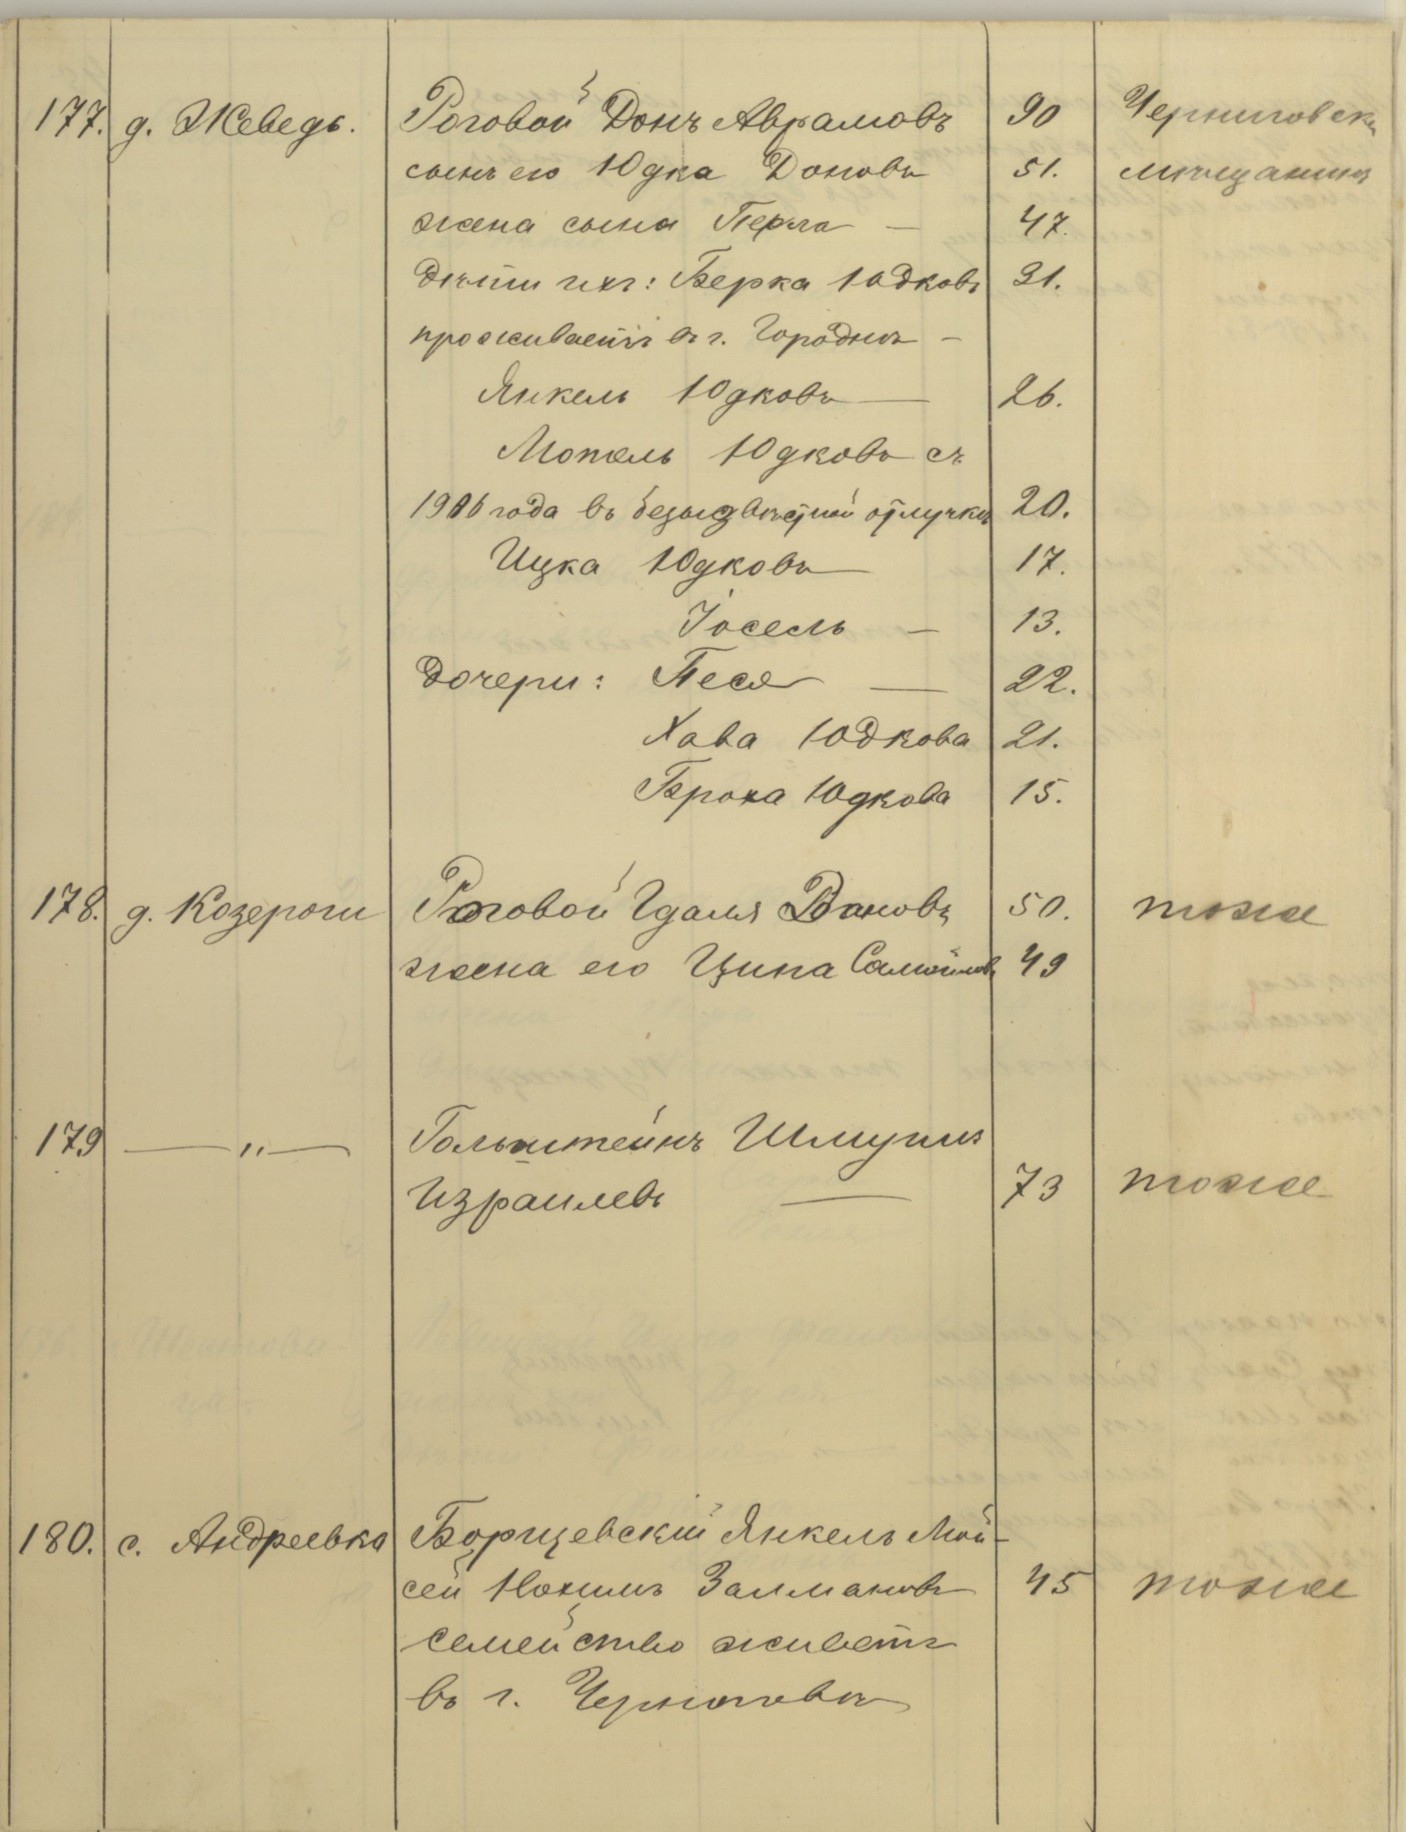 177. д. Жеведь. Роговой Донъ Аврамовъ 90 Черниговск
сынъ его Юдка Доновъ 51. мѣщанинъ
жена сына Перла — 47.
дѣти ихъ: Берка Юдковъ 31.
проживаетъ въ г. Городнѣ —
Янкель Юдковъ — 26.
Мотель Юдковъ съ
1906 года въ безызвѣстной отлучкѣ 20.
Ицка Юдковъ — 17.
Іосель — 13.
Дочери: Песя — 22.
Хава Юдкова 21.
Броха Юдкова 15.
178. д. Козероги Роговой Гдаля Доновъ 50. тоже
жена его Ципа 49
179 — " — Гольштейнъ Шмуилъ
Израилевъ — 73 тоже
180. с. Андреевка Борщевскій Янкель Мой-
сей Нохимъ Залмановъ 45 тоже
семейство живетъ
въ г. Черниговѣ